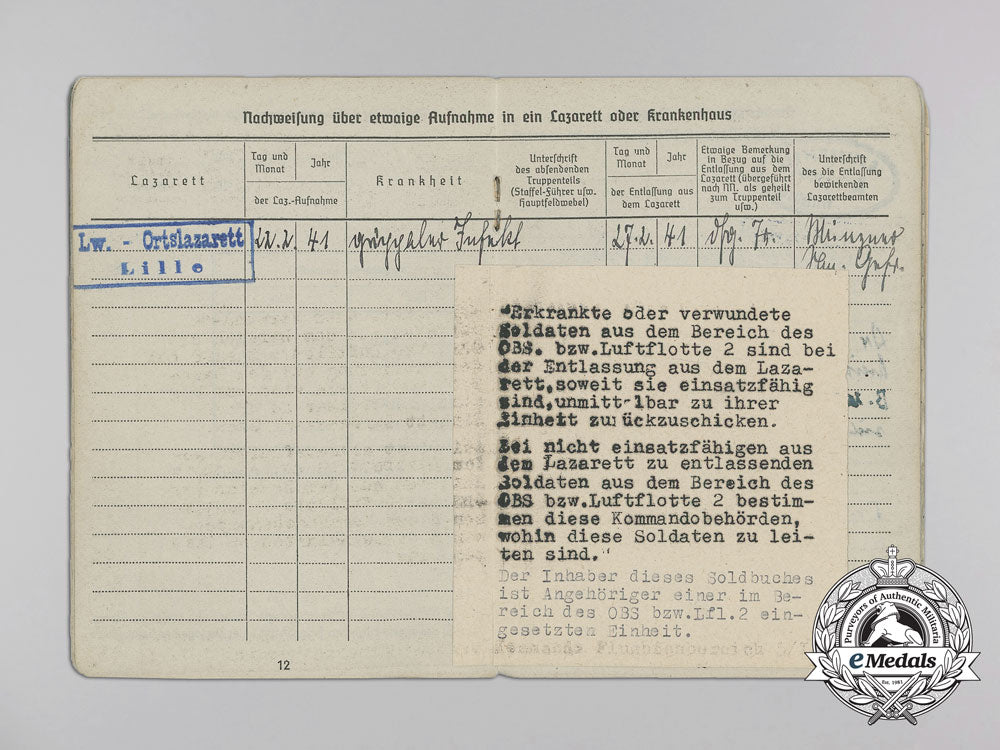 Nachweisung über etwaige Aufnahme in ein Lazarett oder Krankenhaus
Lazarett
Tag und
Monat
Jahr
der Laz.-Aufnahme
Krankheit
Unterschrift
des absendenden
Truppenteils
(Staffel-Führer usw.
Hauptfeldwebel)
Tag und
Monat
Jahr
der Entlassung aus
dem Lazarett
Etwaige Bemerkung
in Bezug auf die
Entlassung aus dem
Lazarett (übergeführt
nach NN. als geheilt
zum Truppenteil
usw.)
Unterschrift
des die Entlassung
bewirkenden
Lazarettbeamten
Lw. - Ortslazarett
Lille
22.2. 41 grippaler Infekt 27.2. 41 dfg. Tr.
Gefr.
"Erkrankte oder verwundete
Soldaten aus dem Bereich des
OBS. bzw.Luftflotte 2 sind bei
der Entlassung aus dem Laza-
rett,soweit sie einsatzfähig
sind,unmittelbar zu ihrer
Einheit zurückzuschicken.
Bei nicht einsatzfähigen aus
dem Lazarett zu entlassenden
Soldaten aus dem Bereich des
OBS bzw.Luftflotte 2 bestim-
men diese Kommandobehörden,
wohin diese Soldaten zu lei-
ten sind."
Der Inhaber dieses Soldbuches
ist Angehöriger einer im Be-
reich des OBS bzw.Lfl.2 ein-
gesetzten Einheit.
12
Purveyors of Authentic Militaria
eMedals
Est. 1981